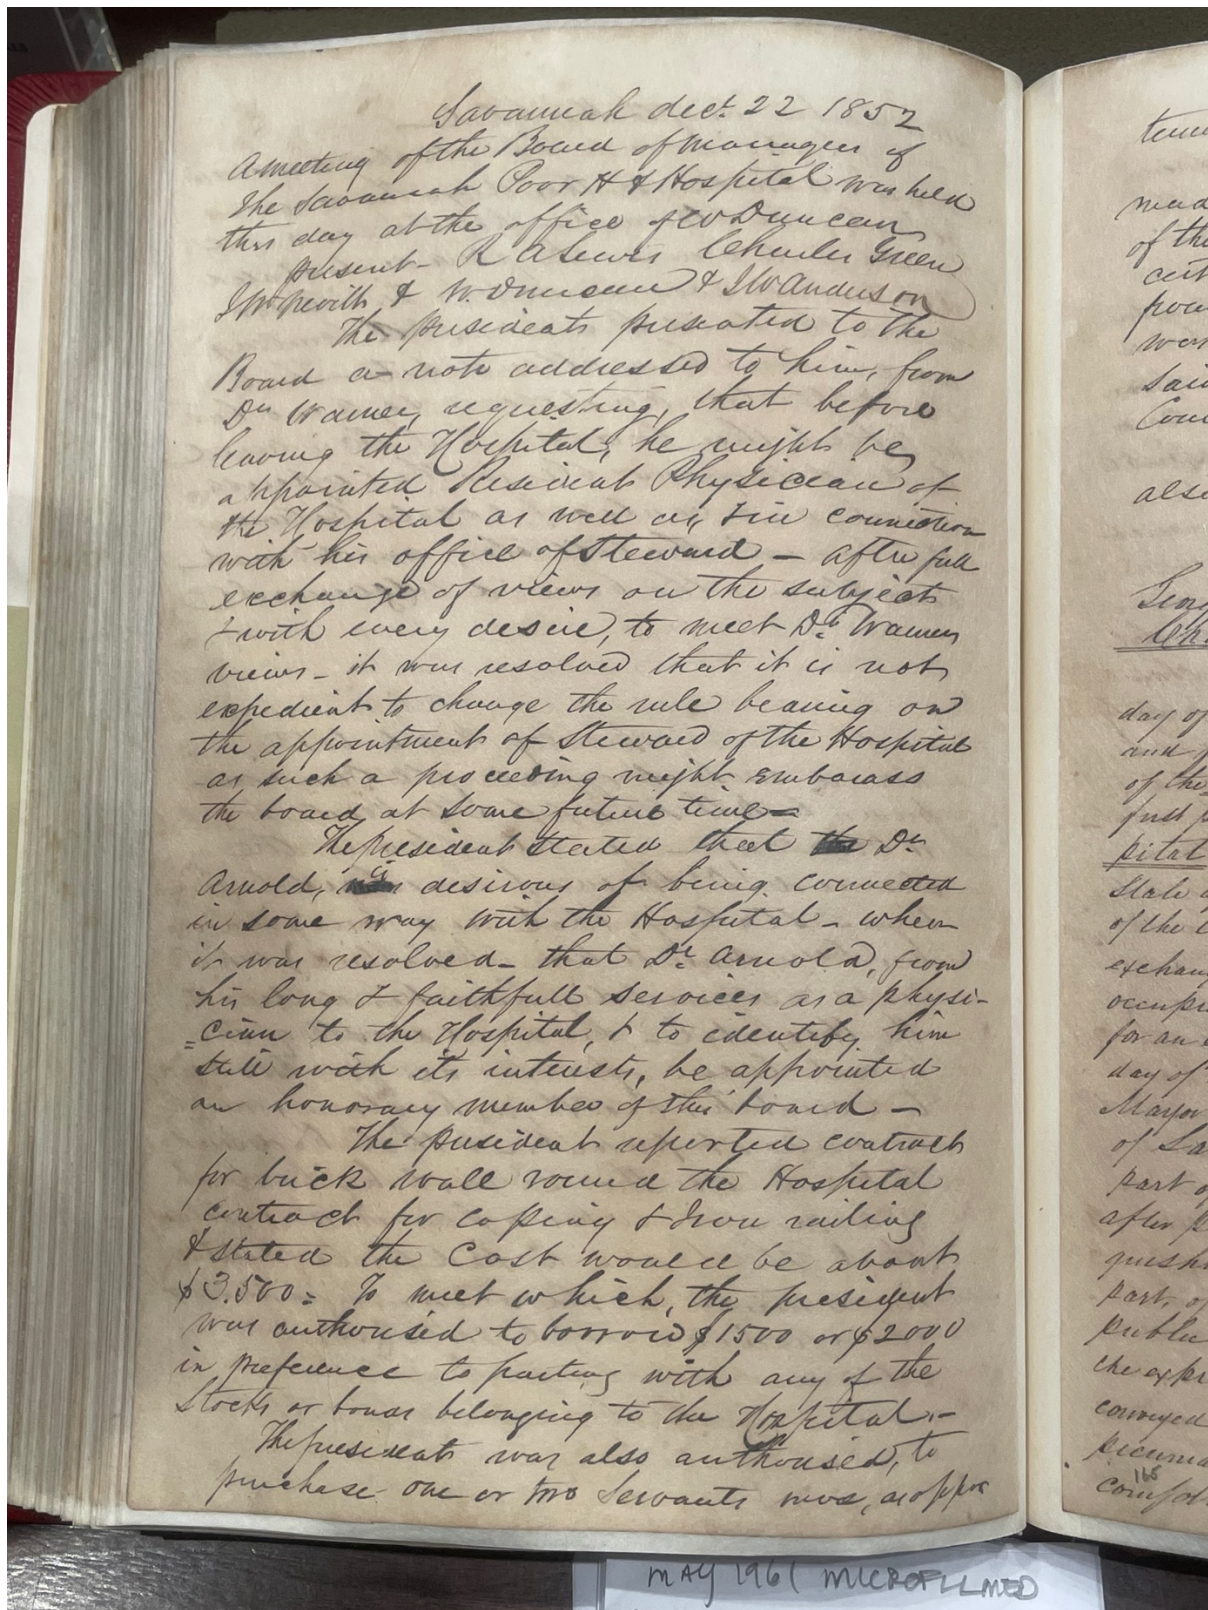 Savannah dect. 22 1852
A meeting of the Board of managers of
The Savannah Poor H & Hospital was held
this day at the office of W Duncan
present - R A Lewis Charles Green
J W Nevitt & W. Duncan & J W Anderson
The presidents presented to the
Board a note addressed to him, from
Dr Wamer, requesting, that before
leaving the Hospital, he might be
appointed Resident Physician of
the Hospital as well as, & in connection
with his office of Steward - after full
exchange of views on the subject
& with every desire, to meet Dr. Wamers
views - it was resolved that it is not
expedient to change the rule bearing on
the appointment of Steward of the Hospital
as such a proceeding might embarass
the board at some future time =
The president stated that Dr
Arnold, desirous of being connected
in some way with the Hospital - when
it was resolved - that Dr. Arnold, from
his long & faithfull services as a physi-
=cian to the Hospital, & to identify him
still with its interests, be appointed
an honorary member of this board -
The president reported contract
for brick wall round the Hospital
contract for coping & Iron railing
& stated the Cost would be about
$3.500 = To meet which, the president
was authorised to borrow $1500 or $2000
in preference to parting with any of the
Stocks or bonds belonging to the Hospital. -
The president was also authorised, to
purchase one or two Servants more, as oppor
tenn
mad
of the
cert
from
wor
said
Com
also
Geor
Ch
day of
and
of the
just
pital
State
of the
exchan
occup
for an
day of
Mayor
of Sa
part o
after p
quest
part, o
public
the exp
conveyed
pecunia
165
comfor
MAY 1961 MICROFILMED